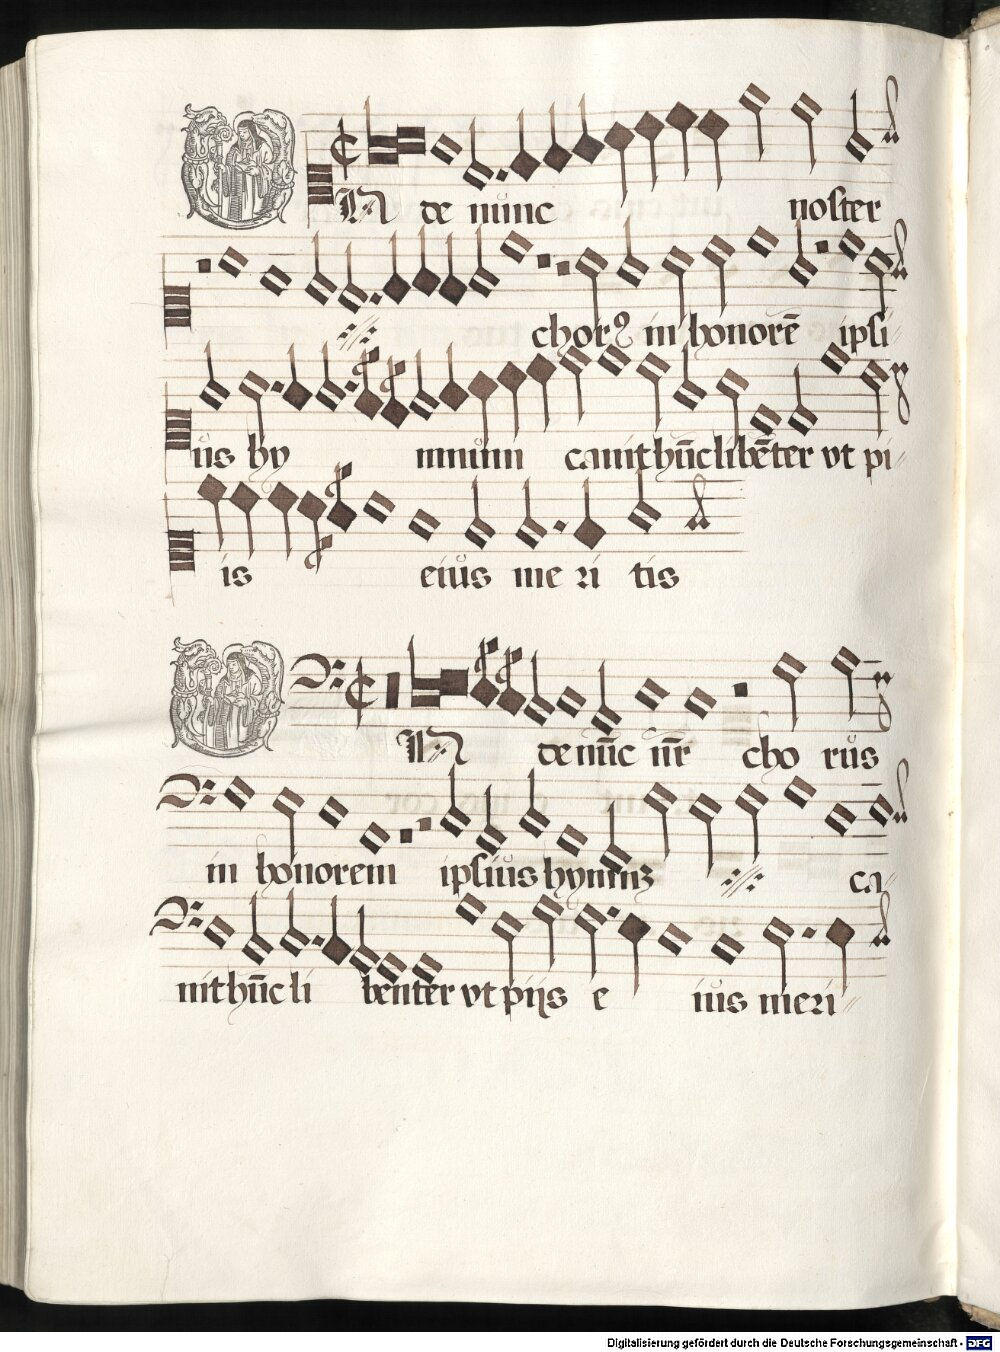 IN de nunc noster
chorꝰ in honorē ipsi
us hy mnum canit hūc libēter vt pi
is eius me ri tis
IN de nūc nr̄ cho rus
in honorem ipsius hymnū ca
nit hūc li benter vt pijs e ius meri
Digitalisierung gefördert durch die Deutsche Forschungsgemeinschaft - DFG